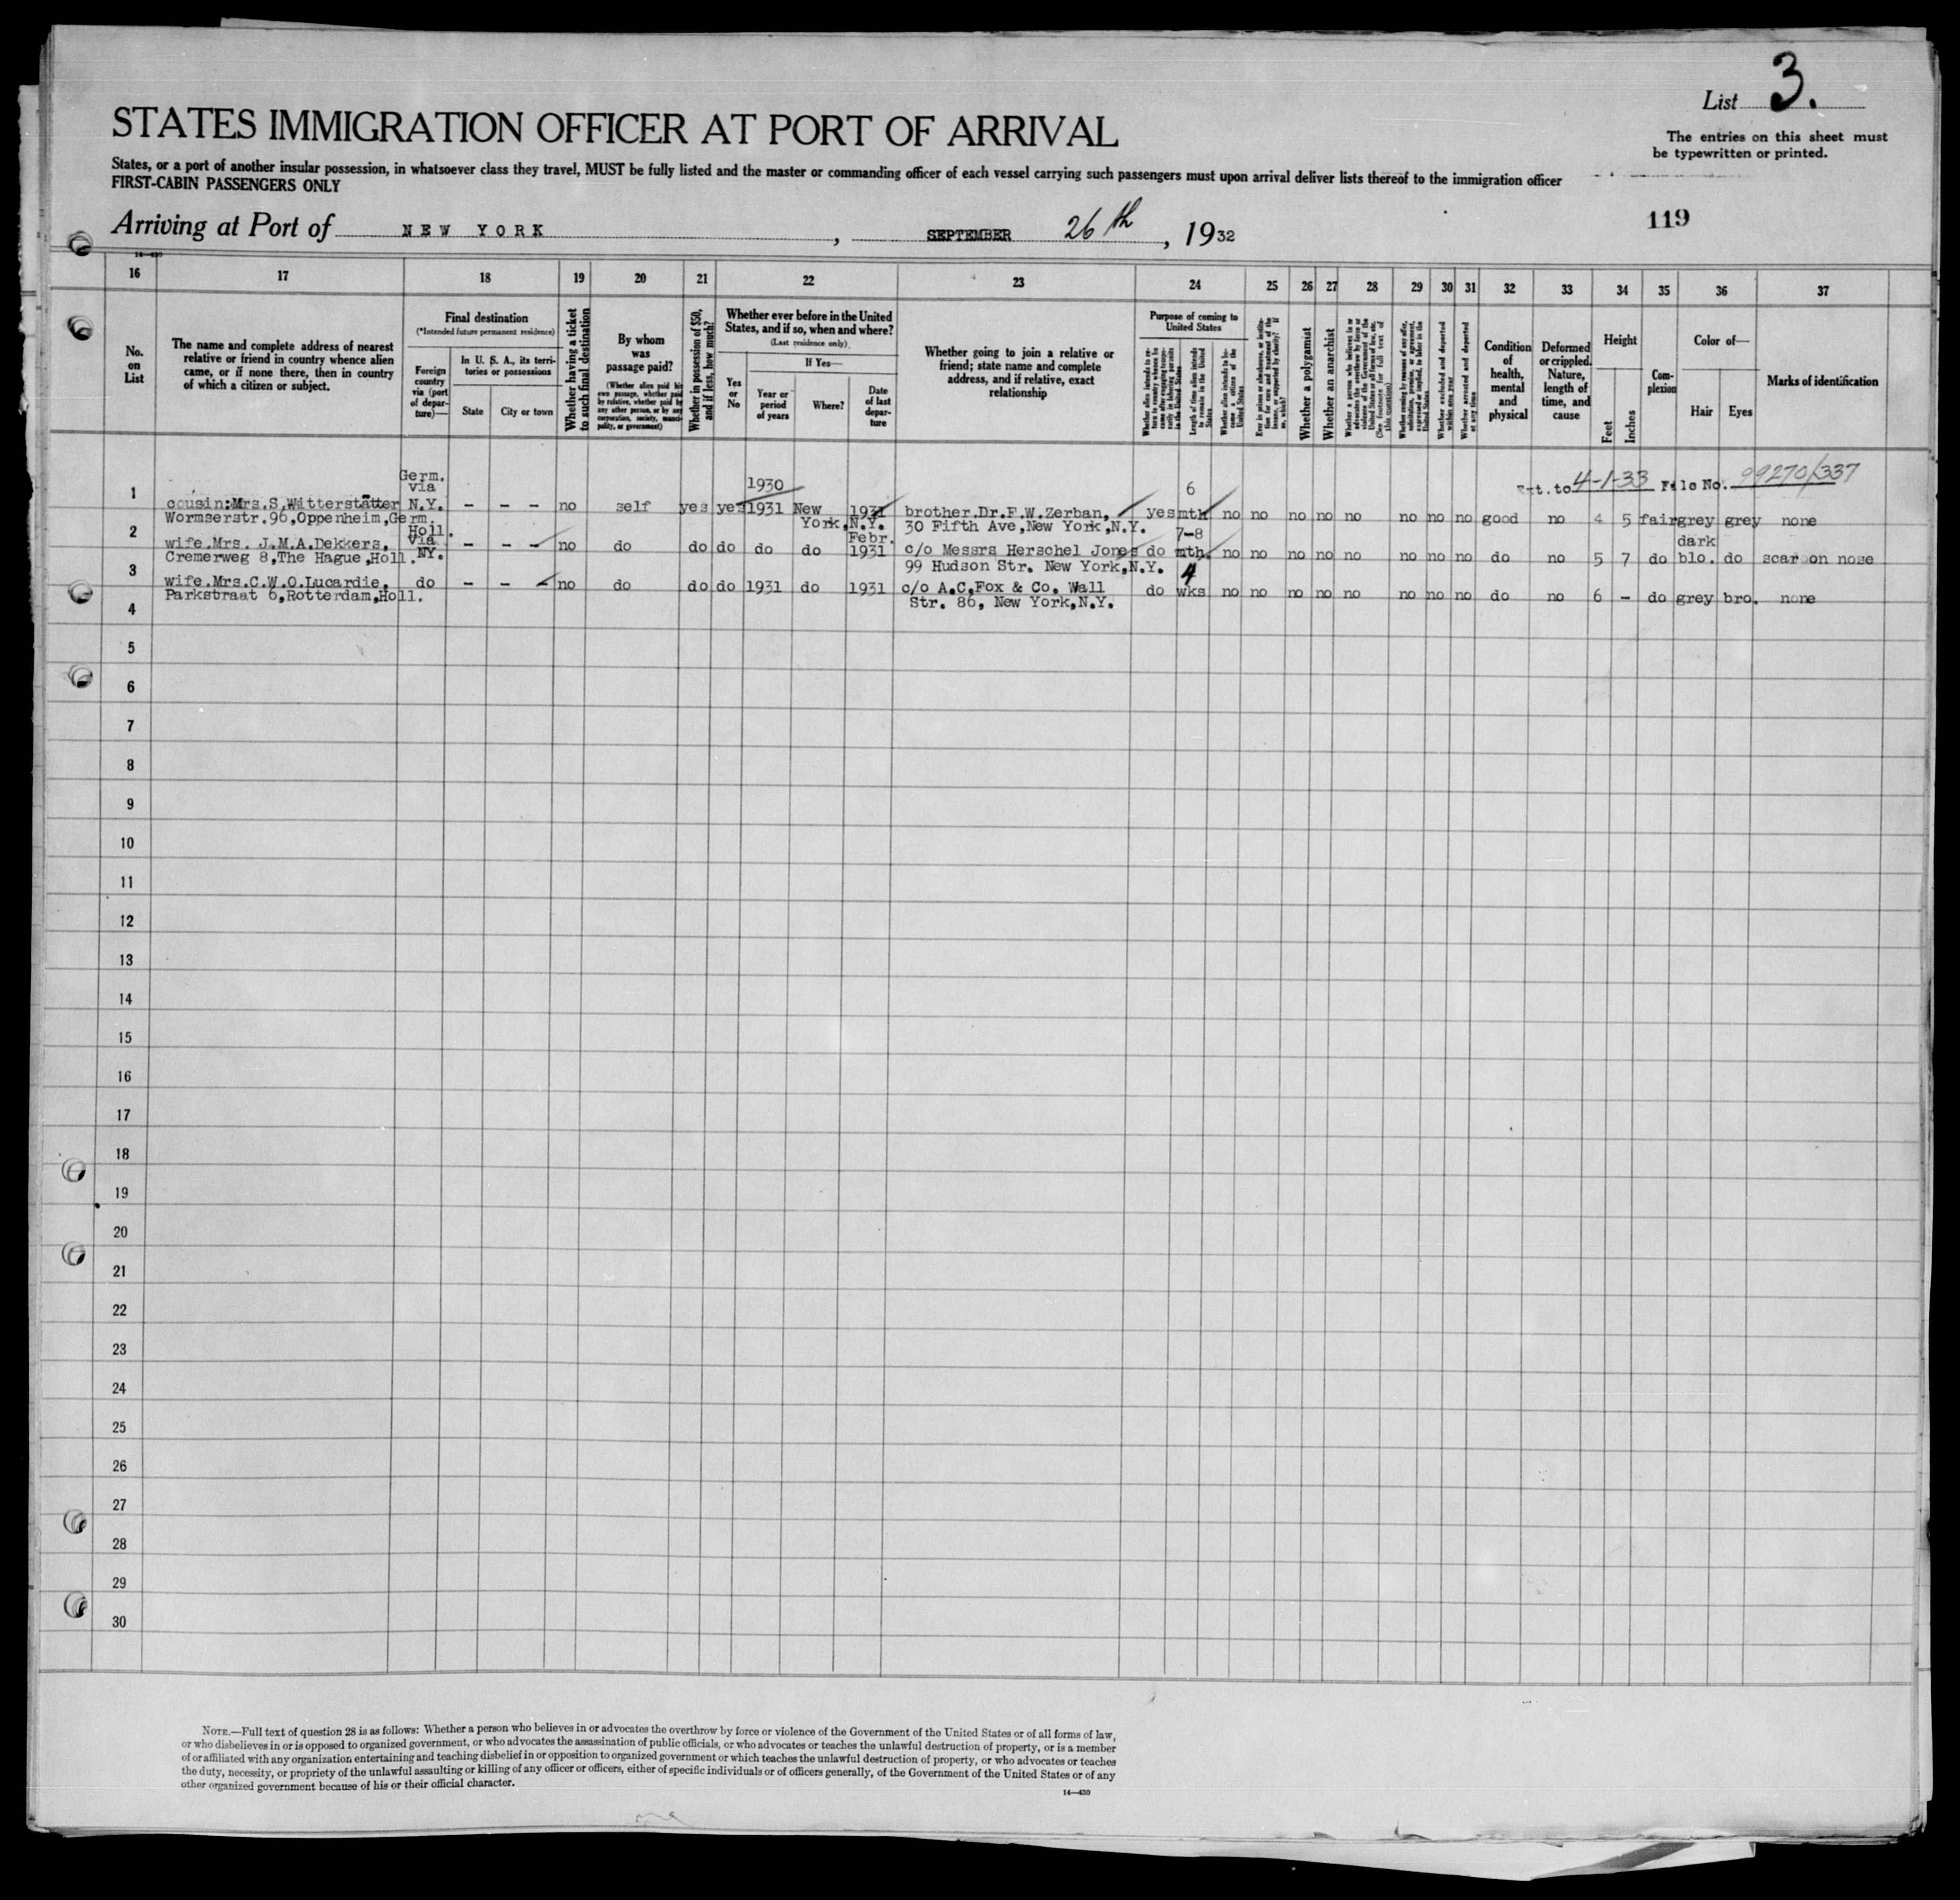 List 3.
The entries on this sheet must
be typewritten or printed.
STATES IMMIGRATION OFFICER AT PORT OF ARRIVAL
States, or a port of another insular possession, in whatsoever class they travel, MUST be fully listed and the master or commanding officer of each vessel carrying such passengers must upon arrival deliver lists thereof to the immigration officer
FIRST-CABIN PASSENGERS ONLY
119
Arriving at Port of NEW YORK, SEPTEMBER 26th, 1932
16 17 18 19 20 21 22 23 24 25 26 27 28 29 30 31 32 33 34 35 36 37
No. on List
The name and complete address of nearest
relative or friend in country whence alien
came, or if none there, then in country
of which a citizen or subject.
Final destination
(*Intended future permanent residence)
Foreign
country
via (port
of depar-
ture)—
In U. S. A., its terri-
tories or possessions
State
City or town
Whether having a ticket
to such final destination
By whom
was
passage paid?
(Whether alien paid his
own passage, whether paid
by relative, whether paid by
any other person, or by any
corporation, society, munici-
pality, or government)
Whether in possession of $50,
and if less, how much?
Whether ever before in the United
States, and if so, when and where?
(Last residence only)
Yes
or
No
If Yes—
Year or
period
of years
Where?
Date
of last
depar-
ture
Whether going to join a relative or
friend; state name and complete
address, and if relative, exact
relationship
Purpose of coming to
United States
Length of time alien intends
to remain in the United
States
Whether alien intends to be-
come a citizen of the
United States
Whether a polygamist
Whether an anarchist
(See footnote for full text of
this question)
Whether arrested and deported
at any time
Condition
of
health,
mental
and
physical
Deformed
or crippled.
Nature,
length of
time, and
cause
Height
Feet
Inches
Com-
plexion
Color of—
Hair
Eyes
Marks of identification
Germ.
via 1930 6 Ext. to 4-1-33 File No. 99270/337
1 cousin:Mrs.S.Witterstätter N.Y. - - - no self yes yes 1931 New 1931 brother.Dr.F.W.Zerban, yes mth no no no no no no no no good no 4 5 fair grey grey none
Wormserstr.96,Oppenheim,Germ. York,N.Y. 30 Fifth Ave,New York,N.Y.
Holl. Febr. 7-8 dark
2 wife.Mrs. J.M.A.Dekkers, via - - - no do do do do do 1931 c/o Messrs Herschel Jones do mth. no no no no no no no no do no 5 7 do blo. do scar on nose
Cremerweg 8,The Hague,Holl. NY. 99 Hudson Str. New York,N.Y.
4
3 wife.Mrs.C.W.O.Lucardie, do - - - no do do do 1931 do 1931 c/o A.C.Fox & Co. Wall do wks no no no no no no no no do no 6 - do grey bro. none
Parkstraat 6,Rotterdam,Holl. Str. 86, New York,N.Y.
4
5
6
7
8
9
10
11
12
13
14
15
16
17
18
19
20
21
22
23
24
25
26
27
28
29
30
NOTE.—Full text of question 28 is as follows: Whether a person who believes in or advocates the overthrow by force or violence of the Government of the United States or of all forms of law,
or who disbelieves in or is opposed to organized government, or who advocates the assassination of public officials, or who advocates or teaches the unlawful destruction of property, or is a member
of or affiliated with any organization entertaining and teaching disbelief in or opposition to organized government or which teaches the unlawful destruction of property, or who advocates or teaches
the duty, necessity, or propriety of the unlawful assaulting or killing of any officer or officers, either of specific individuals or of officers generally, of the Government of the United States or of any
other organized government because of his or their official character.
14—430